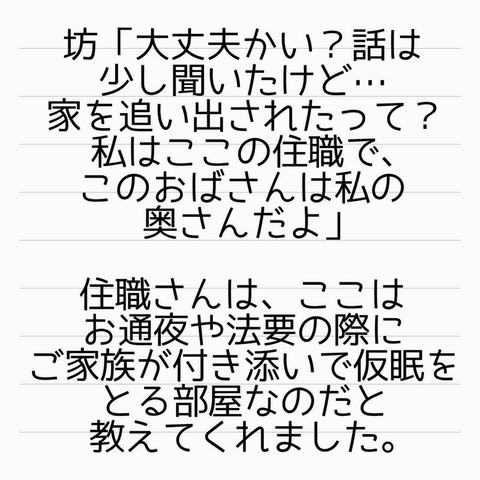 坊「大丈夫かい？話は
少し聞いたけど…
家を追い出されたって？
私はここの住職で、
このおばさんは私の
奥さんだよ」
住職さんは、ここは
お通夜や法要の際に
ご家族が付き添いで仮眠を
とる部屋なのだと
教えてくれました。